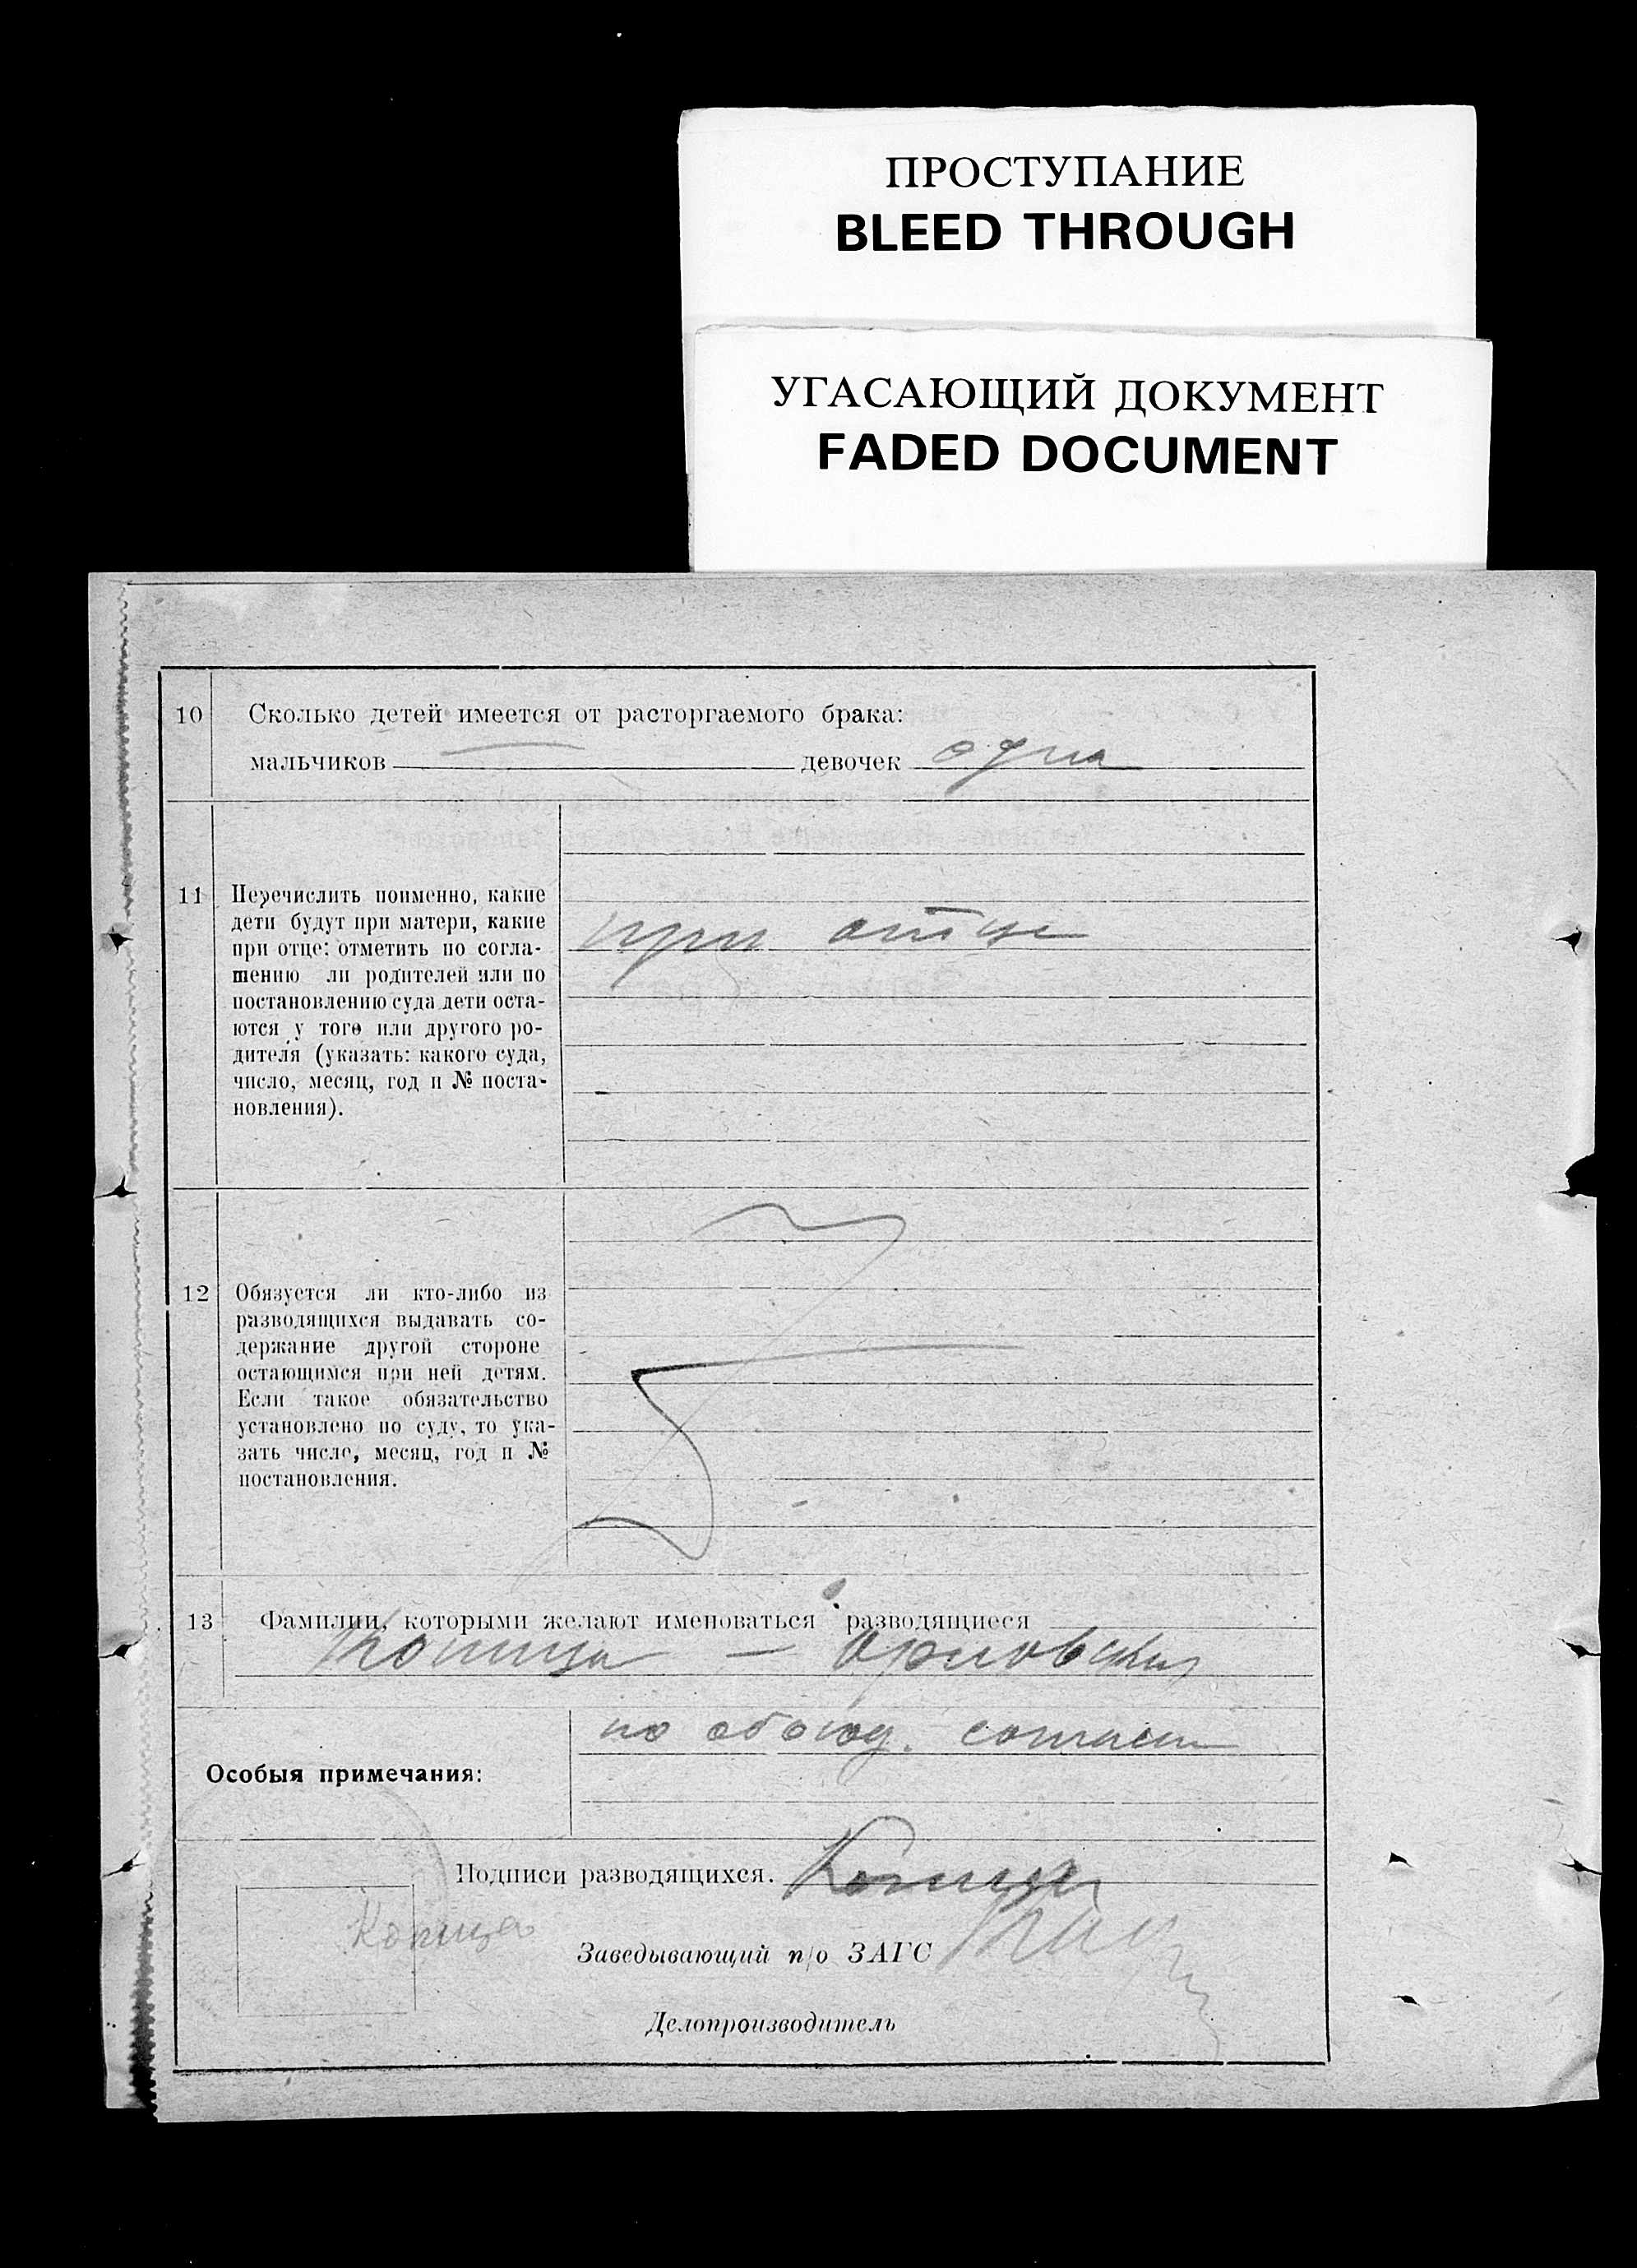 ПРОСТУПАНИЕ
BLEED THROUGH
УГАСАЮЩИЙ ДОКУМЕНТ
FADED DOCUMENT
10 Сколько детей имеется от расторгаемого брака:
мальчиков — девочек одна
11 Перечислить поименно, какие
дети будут при матери, какие
при отце: отметить по согла-
шению ли родителей или по
постановлению суда дети оста-
ются у того или другого ро-
дителя (указать: какого суда,
число, месяц, год и № поста-
новления).
при отце
12 Обязуется ли кто-либо из
разводящихся выдавать со-
держание другой стороне
остающимся при ней детям.
Если такое обязательство
установлено по суду, то ука-
зать число, месяц, год и №
постановления.
13 Фамилии, которыми желают именоваться разводящиеся
Копица — Орловская
по обоюд. согласи
Особыя примечания:
Подписи разводящихся. Копица
Копица
Заведывающий п/о ЗАГС
Делопроизводитель